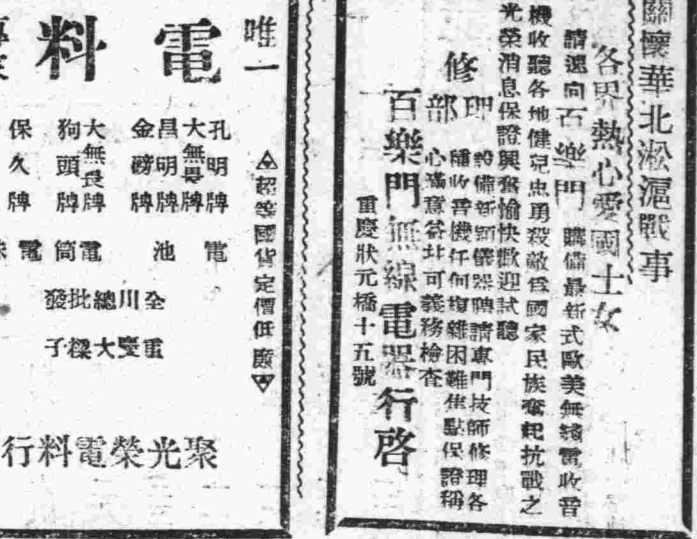 關懷華北淞滬戰事
各界熱心愛國士女
請速向百樂門購備最新式歐美無綫電收音
機收聽各地健兒忠勇殺敵爲國家民族奮起抗戰之
光榮消息保證興奮愉快歡迎試聽
修理部
設備新頴儀器聘請專門技師修理各
種收音機任何複雜困難焦點保證稱
心滿意並可義務檢查
百樂門無線電器行啓
重慶狀元橋十五號
唯一
電料
超等國貨定價低廉
孔明牌
大無畏牌
昌明牌
金磅牌
電池
大無畏牌
狗頭牌
電筒
保久牌
電
全川總批發
重慶大樑子
聚光榮電料行